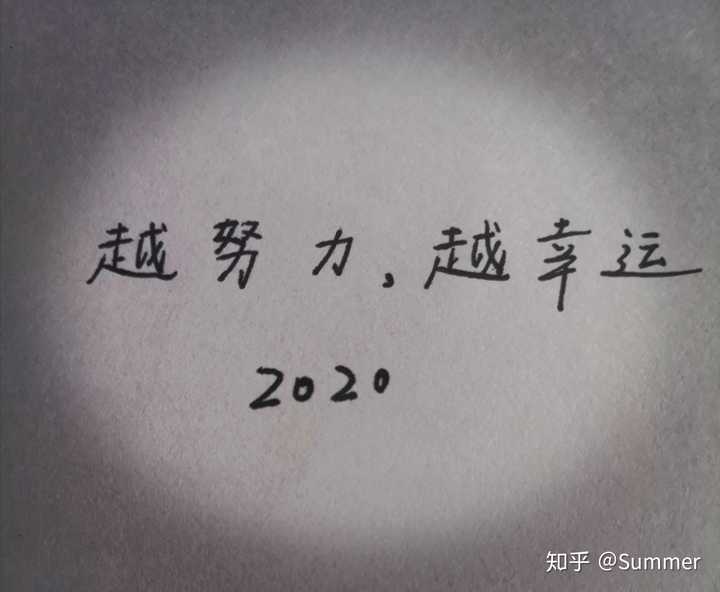 越努力，越幸运
2020
知乎 @Summer